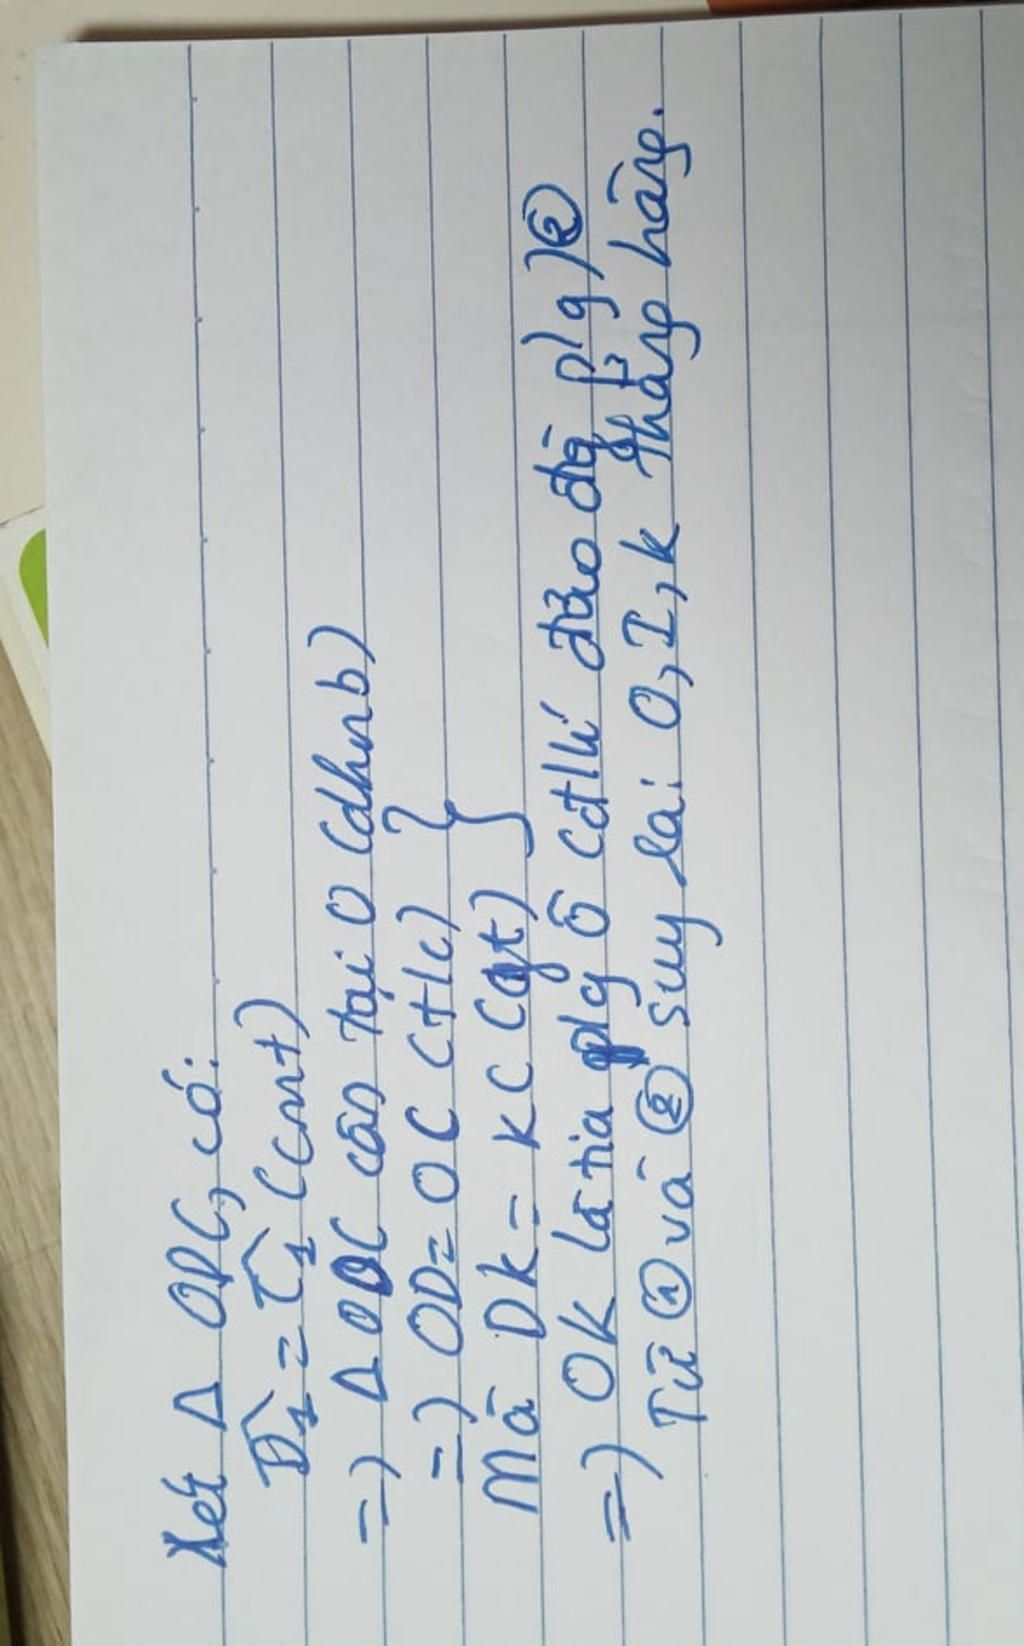 Xét Δ ODC, có:
D̂₁ = Ĉ₁ (cmt)
=) Δ ODC cân tại O (dhnb)
=) OD = OC (t/c)
Mà DK = KC (gt)
=) OK là tia p/g Ô (đ/lí đảo đg p/g) ②
Từ ① và ② suy ra: O, I, K thẳng hàng.